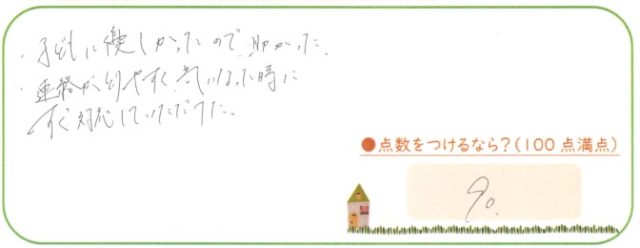 ・子どもに優しかったので助かった。
・連絡がとりやすく、気になった時に
すぐ対応していただけた。
●点数をつけるなら？(100点満点)
90.